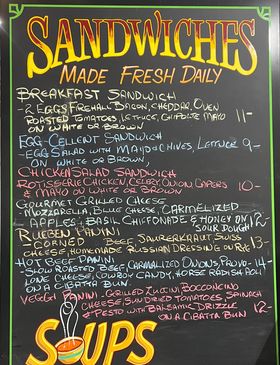 SANDWICHES
MADE FRESH DAILY
BREAKFAST SANDWICH
- 2 EGGS, FIREHALL BACON, CHEDDAR, OVEN
ROASTED TOMATOES, LETTUCE, CHIPOTLE MAYO 11-
ON WHITE OR BROWN
EGG-CELLENT SANDWICH
- EGG SALAD WITH MAYO + CHIVES, LETTUCE 9-
ON WHITE OR BROWN,
CHICKEN SALAD SANDWICH
ROTISSERIE CHICKEN, CELERY, ONION, CAPERS
& MAYO ON WHITE OR BROWN 10-
GOURMET GRILLED CHEESE
MOZZARELLA, BLUE CHEESE, CARMELIZED
APPLES + BASIL CHIFFONADE & HONEY ON 12
SOUR DOUGH
RUEBEN PANINI
- CORNED BEEF, SAUERKRAUT, SWISS
CHEESE, HOMEMADE RUSSIAN DRESSING ON RYE 13-
HOT BEEF PANINI
- SLOW ROASTED BEEF, CARMALIZED ONIONS, PROVO- 14-
LONE CHEESE, COWBOY CANDY, HORSE RADISH AOLI
ON A CIBATTA BUN.
VEGGI PANINI - GRILLED ZUCHINI, BOCCONCINO
CHEESE, SUNDRIED TOMATOES, SPINACH
& PESTO WITH BALSAMIC DRIZZLE
ON A CIBATTA BUN 12
SOUPS